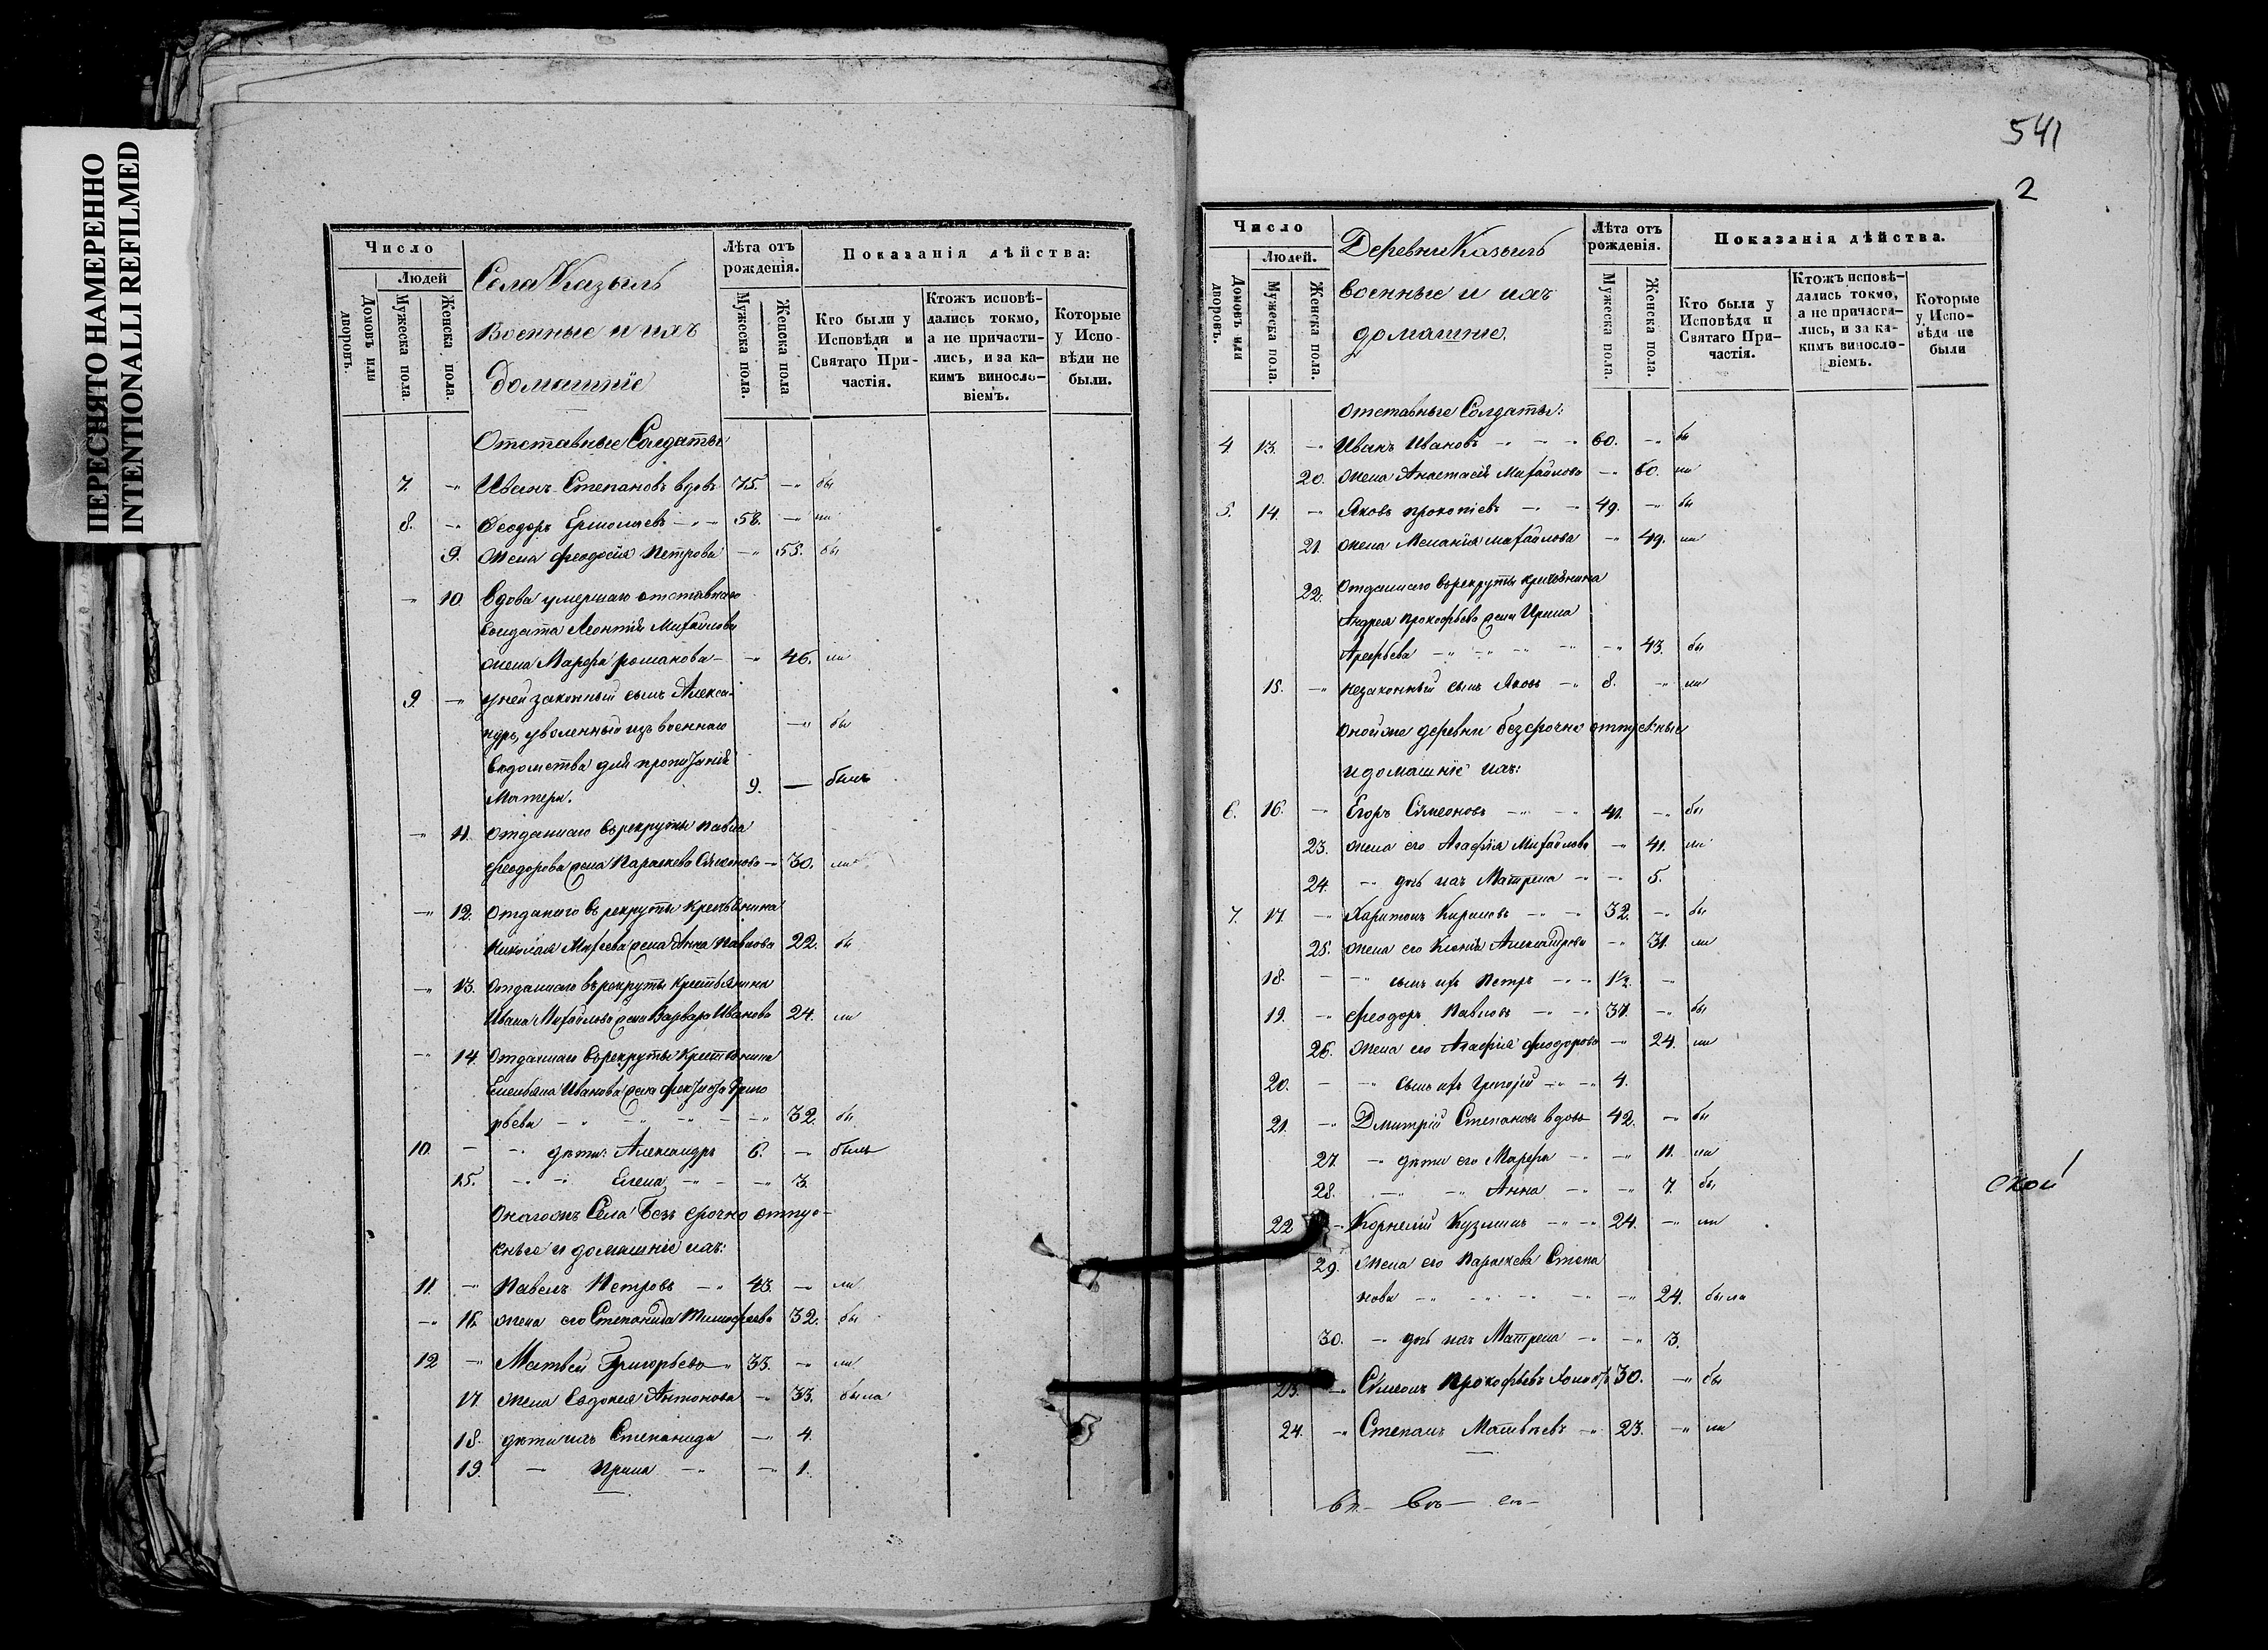 ПЕРЕСНЯТО НАМЕРЕННО
INTENTIONALLI REFILMED
Число
Людей
Домовъ или дворовъ.
Мужеска пола.
Женска пола.
Села Казыль
военные и ихъ
домашніе
Лѣта отъ рожденія.
Мужеска пола.
Женска пола
Показанія дѣйства:
Кто были у Исповѣди и Святаго Причастія.
Ктожъ исповѣдались токмо, а не причастились, и за какимъ винословіемъ.
Которые у Исповѣди не были.
Отставные Солдаты
7. -„ Иванъ Степановъ вдовъ 75. -„ бы
8. -„ Ѳеодоръ Ермолаевъ -„ -„ 58. -„ ли
9. Жена Феодосія Петрова -„ 55. бы
-„ 10. Вдова умершаго отставнаго
Солдата Леонтія Михайлова
жена Марфа Романова - -„ 46. ли
9. -„ у ней законный сынъ Алекса-
ндръ, уволенный изъ военнаго -„ бы
вѣдомства для пропитанія
Матери. 9. — былъ
-„ 11. Отданнаго въ рекруты Павла
Феодорова жена Параскева Симеонова -„ 30. ли
-„ 12. Отданаго въ рекруты крестьянина
Николая жена Анна Павлова 22. бы
-„ 13. Отданнаго въ рекруты крестьянина
Ивана Михайлова жена Варвара Иванова 24. ли
-„ 14. Отданнаго въ рекруты крестьянина
Емельяна Иванова жена Григо
рьева -„ -„ -„ -„ 32. бы
10. - -„ дѣти: Александръ 6. - былъ
15. -„ -„ Елена -„ - -„ 3.
Онагожъ Села безъ срочно отпус-
кные и домашніе ихъ:
11. -„ Павелъ Петровъ -„ 43. -„ ли
-„ 16. жена его Степанида Тимофеева 32. бы
12 -„ Матвей Григорьевъ -„ 33. -„ ли
17. жена Евдокея Антонова -„ 33. была
18. дѣти ихъ Степанида -„ 4.
19. -„ Ирина -„ -„ 1.
541
2
Число
Людей.
Домовъ или дворовъ.
Мужеска пола.
Женска пола.
Деревни Казыль
военные и ихъ
домашніе.
Лѣта отъ рожденія.
Мужеска пола.
Женска пола.
Показанія дѣйства.
Кто были у Исповѣди и Святаго Причастія.
Ктожъ исповѣдались токмо, а не причастились, и за какимъ винословіемъ.
Которые у Исповѣди не были
Отставные Солдаты:
4. 13. -„ Иванъ Ивановъ -„ -„ -„ 60. -„ бы
20. Жена Анастасія Михайлова -„ 60. ли
5. 14. -„ Яковъ Прокопіевъ -„ -„ 49. -„ бы
21. Жена Меланія Михайлова -„ 49. ли
22. Отданнаго въ рекруты крестьянина
Андрея Прокофьева жена Ирина
Арефьева -„ -„ -„ -„ -„ 43. бы
15. -„ незаконный сынъ Яковъ -„ 8. -„ ли
Онойже деревни безсрочно отпускные
и домашніе ихъ:
6. 16. -„ Егоръ Симеоновъ -„ -„ 41. -„ бы
23. жена его Агафія Михайлова -„ 41. ли
24. -„ дочь ихъ Матрена -„ -„ 5.
7. 17. -„ Харитонъ Кириловъ -„ -„ 32. -„ бы
25. Жена его Ксенія Александрова -„ 31. ли
18. - -„ сынъ ихъ Петръ -„ -„ 1½. -„
19. -„ Феодоръ Павловъ -„ -„ 31. -„ бы
26. Жена его Агафія Феодорова -„ 24. ли
20. - -„ сынъ ихъ Григорій -„ -„ 4.
21. -„ Дмитрій Степановъ вдовъ 42. -„ бы
27. -„ дѣти его Марфа -„ -„ 11. ли
28. -„ -„ Анна -„ -„ 7. бы
22 - Корнелій Кузминъ -„ -„ 24. -„ ли
29. Жена его Параскева Степа
нова -„ -„ -„ -„ -„ 24. была
30. -„ дочь ихъ Матрена -„ -„ 3.
23. -„ Симеонъ Прокофьевъ 30. -„ бы
24. -„ Степанъ Матвѣевъ -„ 23. -„ ли
ской